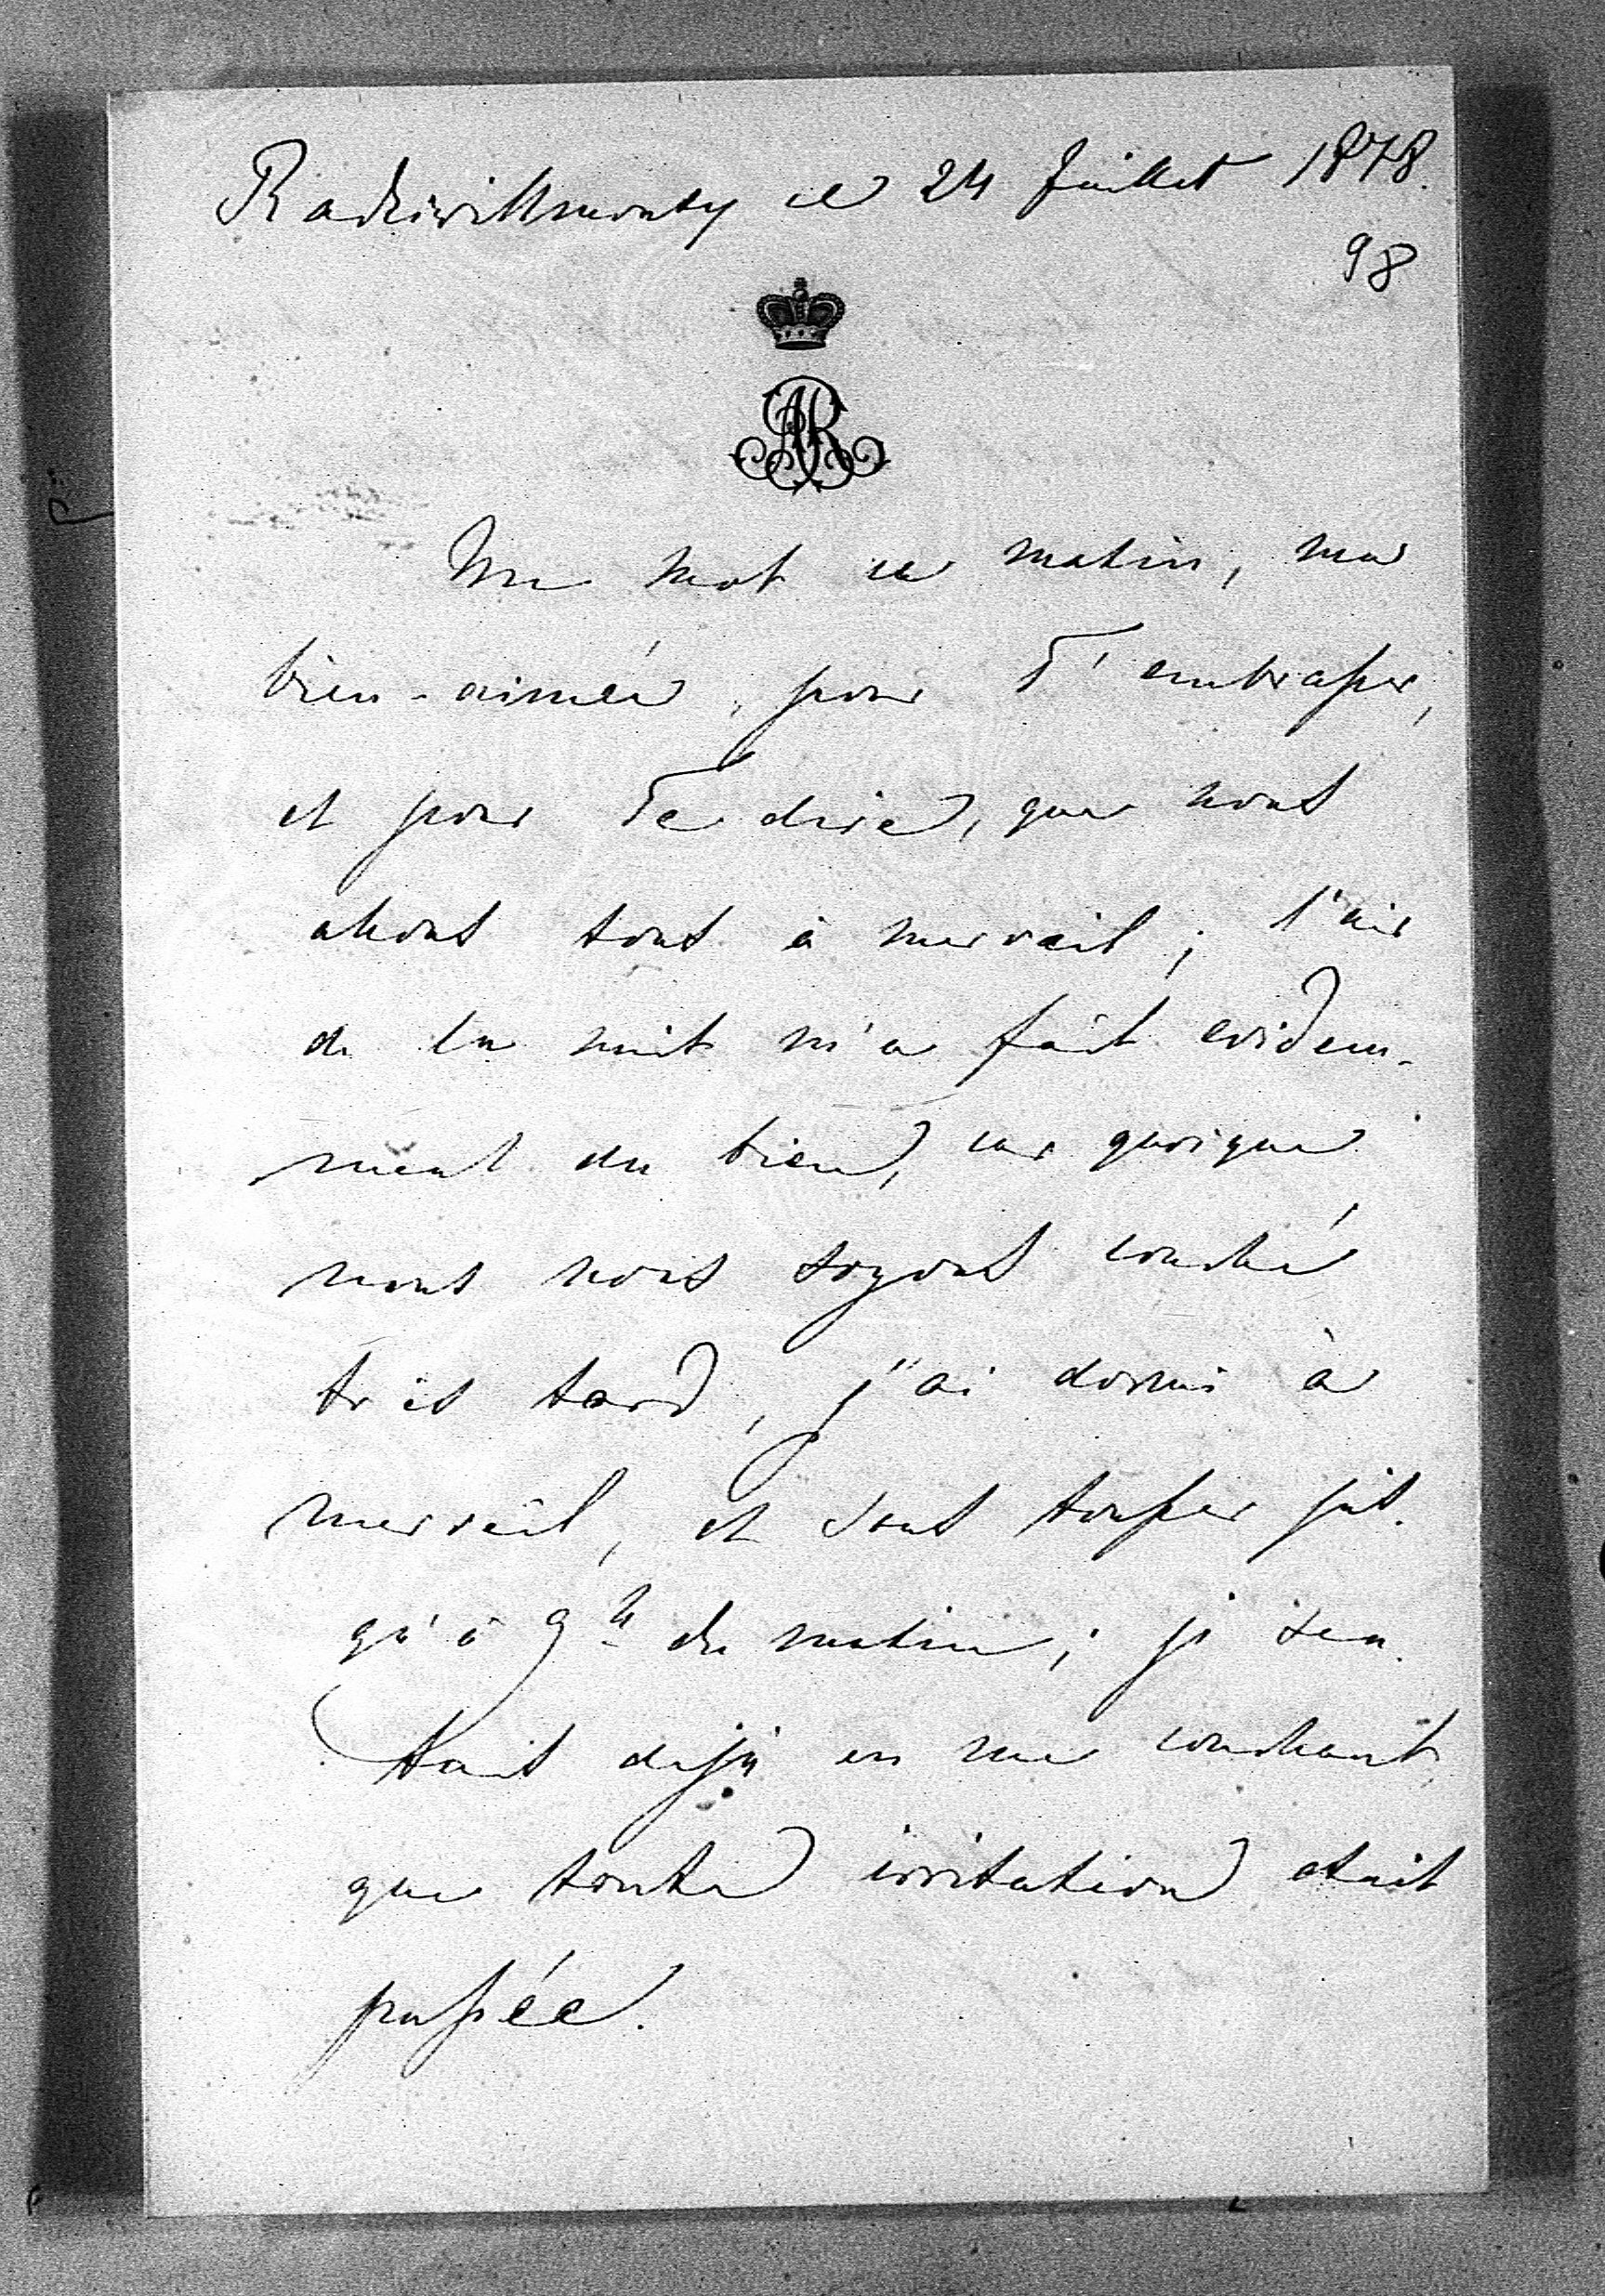 Radziwillmonty ce 24 Juillet 1878.
98
AR
Un mot ce matin, ma
bien-aimée, pour T'embrasser,
et pour Te dire, que nous
allons tous à merveil; l'air
de la nuit m'a fait evidem-
ment du bien, car quoique
nous nous soyons couché
très tard, j'ai dormi à
merveil, et sans tousser jus-
qu'à 9 h du matin; je sen-
tais dejà en me couchant,
que toute irritation etait
passée.